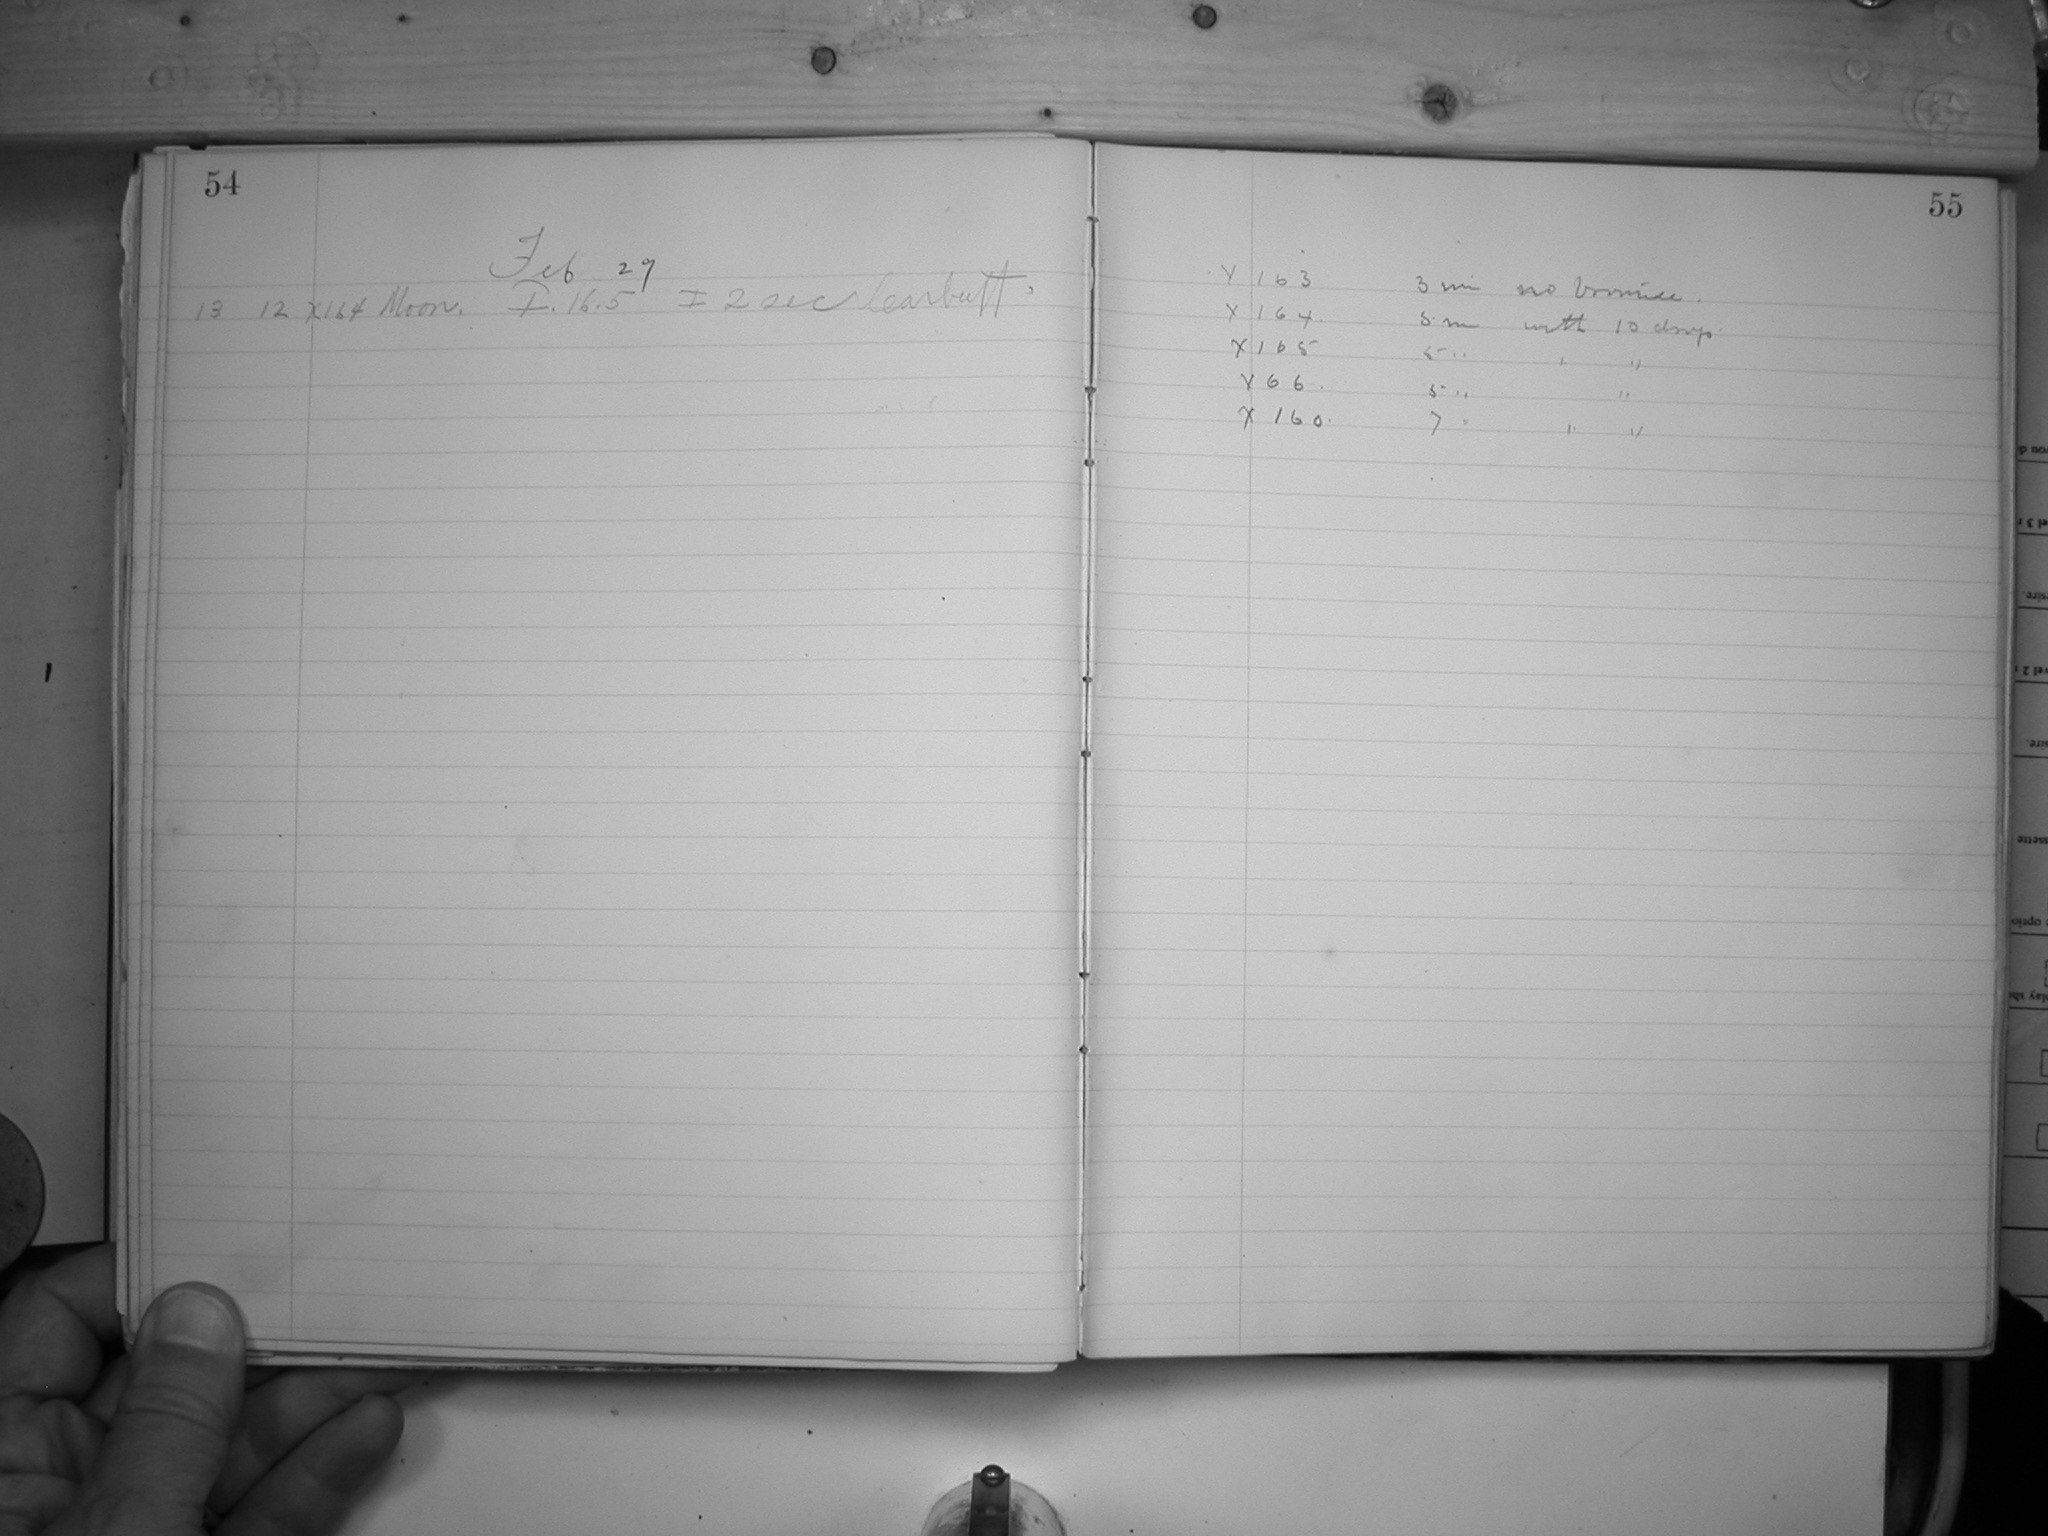 54
Feb 29
13 12 X164 Moon. I. 16.5 I 2 sec Carbutt.
55
X 163 3 min no bromide.
X 164. 5 m with 10 drops.
X 165 5 " " "
X 66. 5 " "
X 160. 7 " " "